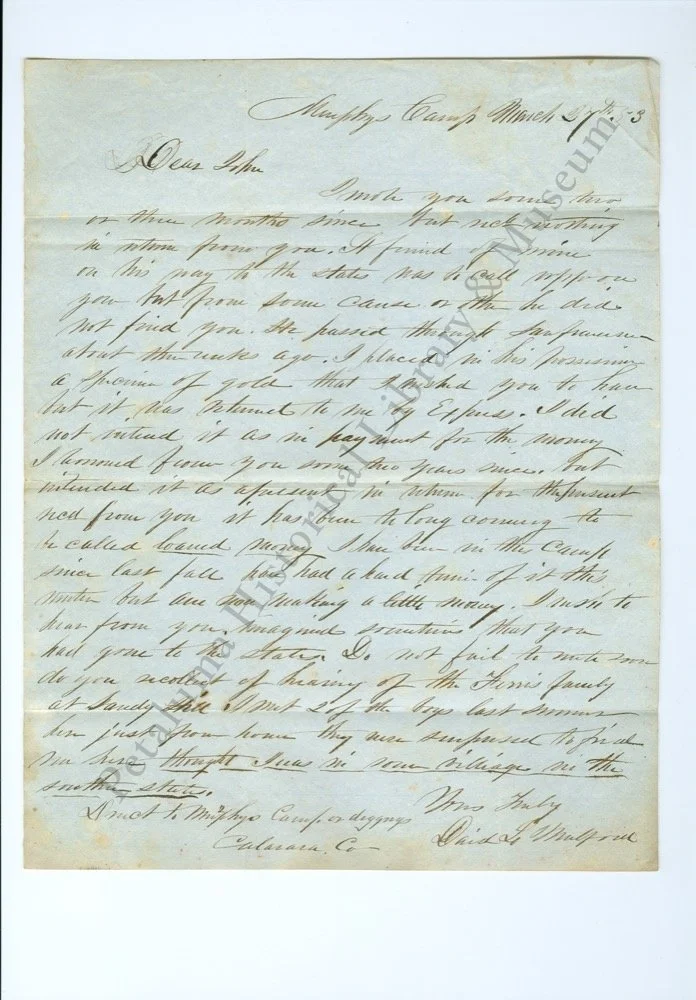 Murphys Camp March 27th 53
Dear John
I wrote you some two
or three months since but recd nothing
in return from you. A friend of mine
on his way to the states was to call upp on
you but from some cause or other he did
not find you. He passed through
about three weeks ago. I placed in his possession
a specimen of gold that I wished you to have
but it was returned to me by Express. I did
not intend it as in payment for the money
I borrowed from you some two years since. but
intended it as a present in return for the present
recd from you it has been to long coming to
be called loaned money I have been in the Camp
since last fall have had a hard time of it this
winter but are now making a little money. I wish to
hear from you. imagined sometimes that you
had gone to the states. Do not fail to write soon
do you recollect of hearing of the Ferris family
at Sandy Hill I met 2 of the boys last summer
here just from home they were surprised to find
me here thought I was in some village in the
southern states.
Yours Truly
Direct to Murphys Camp or diggngs
Calavara. Co
David L Mulford
Petaluma Historical Library & Museum